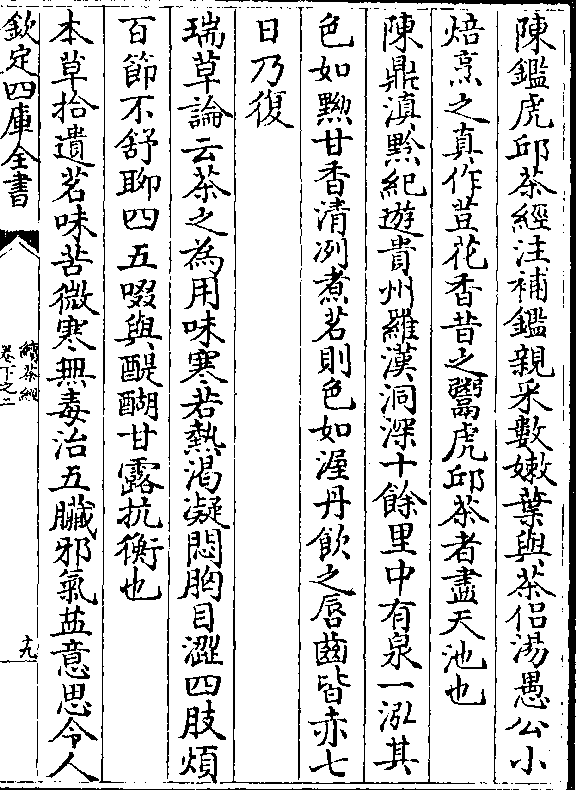 陳鑑虎邱茶經注補鑑親采數嫰葉與茶侣湯愚公小
焙烹之真作荳花香昔之鬻虎邱茶者盡天池也
陳鼎滇黔紀遊貴州羅漢洞深十餘里中有泉一泓其
色如黝甘香清冽煮茗則色如渥丹飲之唇齒皆赤七
日乃復
瑞草論云茶之為用味寒若熱渴凝悶胸目澀四肢煩
百節不舒聊四五啜與醍醐甘露抗衡也
本草拾遺茗味苦微寒無毒治五臟邪氣益意思令人
欽定四庫全書
續茶經
卷下之二
十九